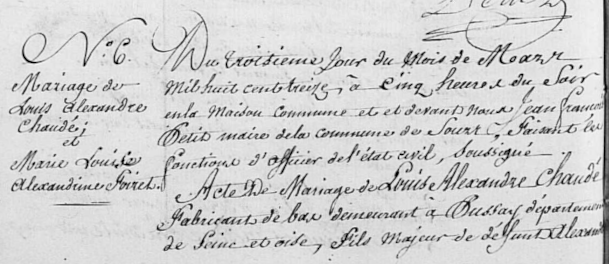 N.º 6.
Mariage de
Louis Alexandre
Chaudé;
et
Marie Louise
Alexandrine Poiret.
Du troisieme Jour du Mois de Mars
Mil huit cent treize, à Cinq heures du Soir
en la Maison commune et et devant nous Jean Francois
Petit maire de la commune de Sours, faisant les
fonctions d'officier de l'état civil, soussigné
Acte De Mariage de Louis Alexandre Chaudé
Fabricant de bas demeurant à Dussay département
de Seine et oise, Fils Majeur de défunt Alexandre